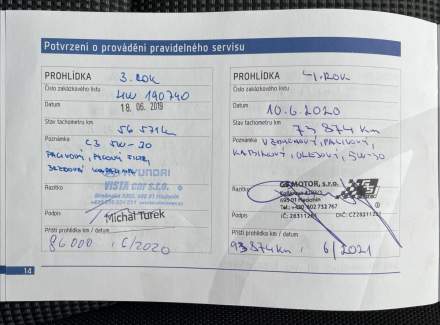 Potvrzení o provádění pravidelného servisu
PROHLÍDKA 3. ROK
Číslo zakázkového listu
HW 190740
Datum 18. 06. 2019
Stav tachometru km
56 571 km
Poznámka
C3 5W-30
PALIVOVÝ, PYLOVÝ FILTR,
BRZDOVÁ KAPALINA
Razítko
HYUNDAI
VISTA car s.r.o.
Podpis
Michal Turek
Příští prohlídka km / datum
86000 6/2020
14
PROHLÍDKA 4. ROK
Číslo zakázkového listu
Datum
10.6.2020
Stav tachometru km
73 874 km
Poznámka
VZDUCHOVÝ, PALIVOVÝ,
KABINOVÝ, OLEJOVÝ, 5W-30
Razítko
MOTOR, s.r.o.
Podpis
Příští prohlídka km / datum
93 874 km 6/2021